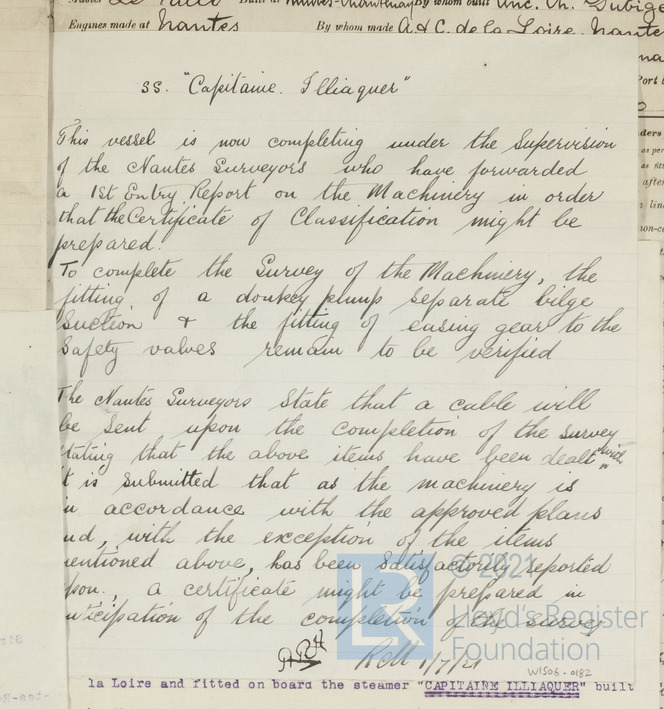 Built at Nantes-Chantenay By whom built Anc. Ch. Dubige
Engines made at Nantes By whom made A & C. de la Loire. Nante
SS. "Capitaine. Illiaquer"
This vessel is now completing under the Supervision
of the Nantes Surveyors who have forwarded
a 1st Entry Report on the Machinery in order
that the Certificate of Classification might be
prepared.
To complete the Survey of the Machinery, the
fitting of a donkey pump separate bilge
Suction & the fitting of easing gear to the
Safety valves remain to be verified
The Nantes Surveyors State that a cable will
be sent upon the completion of the survey
tating that the above items have been dealt with
t is submitted that as the machinery is
in accordance with the approved plans
nd, with the exception of the items
entioned above, has been satisfactorily reported
pon, a certificate might be prepared in
nticipation of the completion of the survey
1/7/21
© 2021
Lloyd's Register
Foundation
W1506-0182
la Loire and fitted on board the steamer "CAPITAINE ILLIAQUER" built